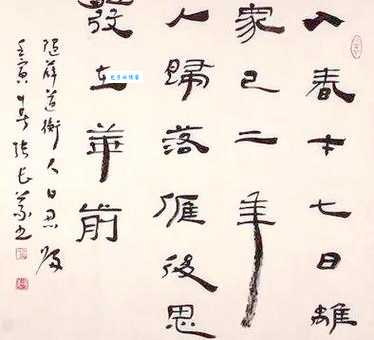 入春才七日離
家已二年
人歸落雁後思
發在華前
隨薛道衡人日思歸
壬寅春張長書